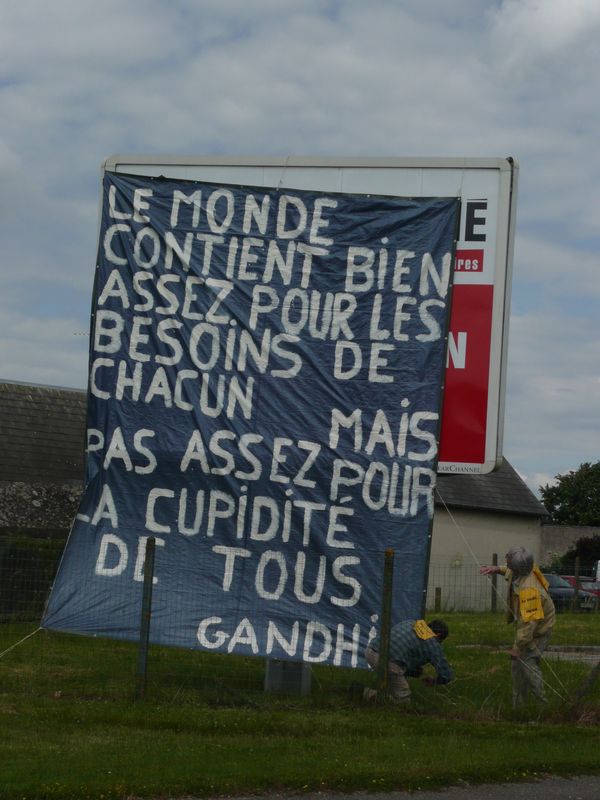 LE MONDE
CONTIENT BIEN
ASSEZ POUR LES
BESOINS DE
CHACUN MAIS
PAS ASSEZ POUR
LA CUPIDITÉ
DE TOUS
GANDHi
É
ires
N
EARCHANNEL